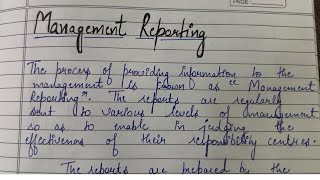 PAGE
Management Reporting
The process of providing information to the
management is known as "Management
Reporting". The reports are regularly
sent to various levels of management
so as to enable in judging the
effectiveness of their responsibility centres.
The reports are prepared by the